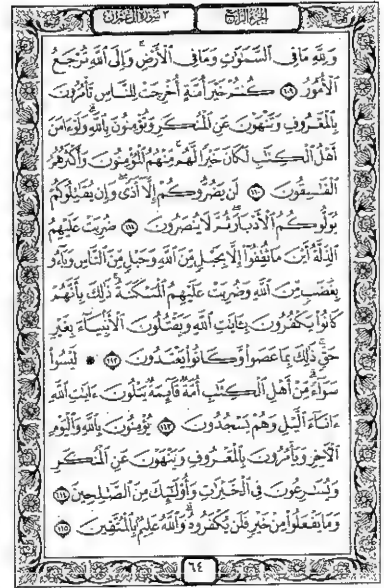 الجزء الرابع ٣ سورة آل عمران
وَلِلَّهِ مَا فِي السَّمَٰوَٰتِ وَمَا فِي الْأَرْضِ وَإِلَى اللَّهِ تُرْجَعُ
الْأُمُورُ ١٠٩ كُنتُمْ خَيْرَ أُمَّةٍ أُخْرِجَتْ لِلنَّاسِ تَأْمُرُونَ
بِالْمَعْرُوفِ وَتَنْهَوْنَ عَنِ الْمُنكَرِ وَتُؤْمِنُونَ بِاللَّهِ وَلَوْ ءَامَنَ
أَهْلُ الْكِتَٰبِ لَكَانَ خَيْرًا لَّهُم مِّنْهُمُ الْمُؤْمِنُونَ وَأَكْثَرُهُمُ
الْفَٰسِقُونَ ١١٠ لَن يَضُرُّوكُمْ إِلَّا أَذًى وَإِن يُقَٰتِلُوكُمْ
يُوَلُّوكُمُ الْأَدْبَارَ ثُمَّ لَا يُنصَرُونَ ١١١ ضُرِبَتْ عَلَيْهِمُ
الذِّلَّةُ أَيْنَ مَا ثُقِفُوا إِلَّا بِحَبْلٍ مِّنَ اللَّهِ وَحَبْلٍ مِّنَ النَّاسِ وَبَاءُو
بِغَضَبٍ مِّنَ اللَّهِ وَضُرِبَتْ عَلَيْهِمُ الْمَسْكَنَةُ ذَٰلِكَ بِأَنَّهُمْ
كَانُوا يَكْفُرُونَ بِـَٔايَٰتِ اللَّهِ وَيَقْتُلُونَ الْأَنۢبِيَاءَ بِغَيْرِ
حَقٍّ ذَٰلِكَ بِمَا عَصَوا وَّكَانُوا يَعْتَدُونَ ١١٢ * لَيْسُوا
سَوَاءً مِّنْ أَهْلِ الْكِتَٰبِ أُمَّةٌ قَائِمَةٌ يَتْلُونَ ءَايَٰتِ اللَّهِ
ءَانَاءَ الَّيْلِ وَهُمْ يَسْجُدُونَ ١١٣ يُؤْمِنُونَ بِاللَّهِ وَالْيَوْمِ
الْءَاخِرِ وَيَأْمُرُونَ بِالْمَعْرُوفِ وَيَنْهَوْنَ عَنِ الْمُنكَرِ
وَيُسَٰرِعُونَ فِي الْخَيْرَٰتِ وَأُولَٰئِكَ مِنَ الصَّٰلِحِينَ ١١٤
وَمَا يَفْعَلُوا مِنْ خَيْرٍ فَلَن يُكْفَرُوهُ وَاللَّهُ عَلِيمٌ بِالْمُتَّقِينَ ١١٥
٦٤